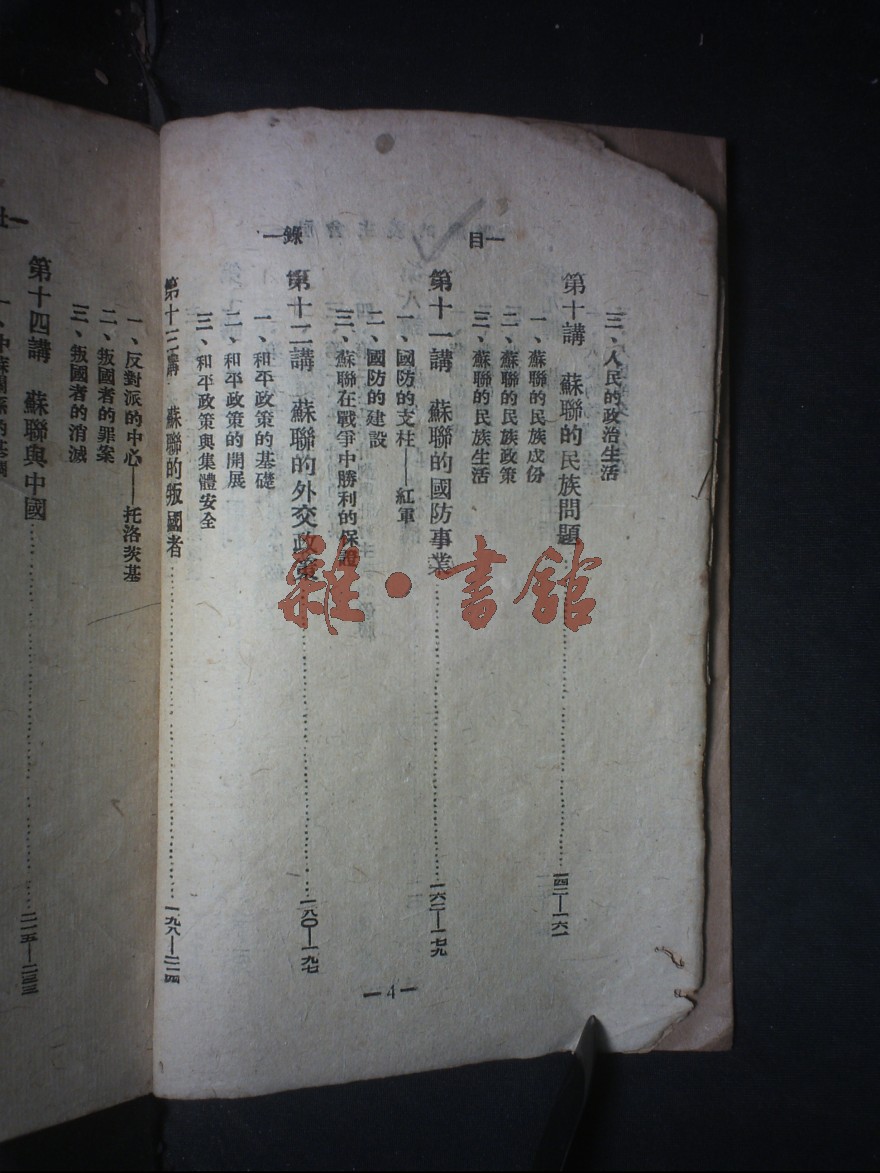 —目錄—
三、人民的政治生活
第十講　蘇聯的民族問題……一四二—一六一
一、蘇聯的民族成份
二、蘇聯的民族政策
三、蘇聯的民族生活
第十一講　蘇聯的國防事業……一六二—一七九
一、國防的支柱——紅軍
二、國防的建設
三、蘇聯在戰爭中勝利的保證
第十二講　蘇聯的外交政策……一八〇—一九七
一、和平政策的基礎
二、和平政策的開展
三、和平政策與集體安全
第十三講　蘇聯的叛國者……一九八—二一四
—4—
一、反對派的中心——托洛茨基
二、叛國者的罪案
三、叛國者的消滅
第十四講　蘇聯與中國……二一五—二三三
一、中蘇關係的基調
雜·書館